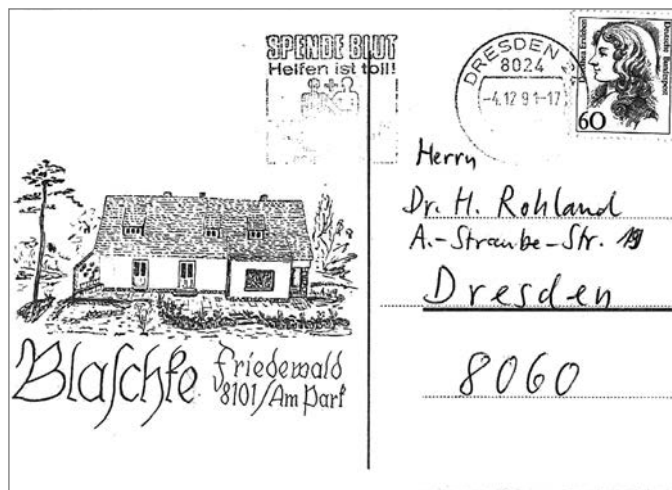 SPENDE BLUT
Helfen ist toll!
DRESDEN
8024
-4.12.91-17
Dorothea Erxleben
Deutsche Bundespost
60
Herrn
Dr. H. Rohland
A.-Straube-Str. 19
Dresden
8060
Blaschke
Friedewald
8101/Am Park